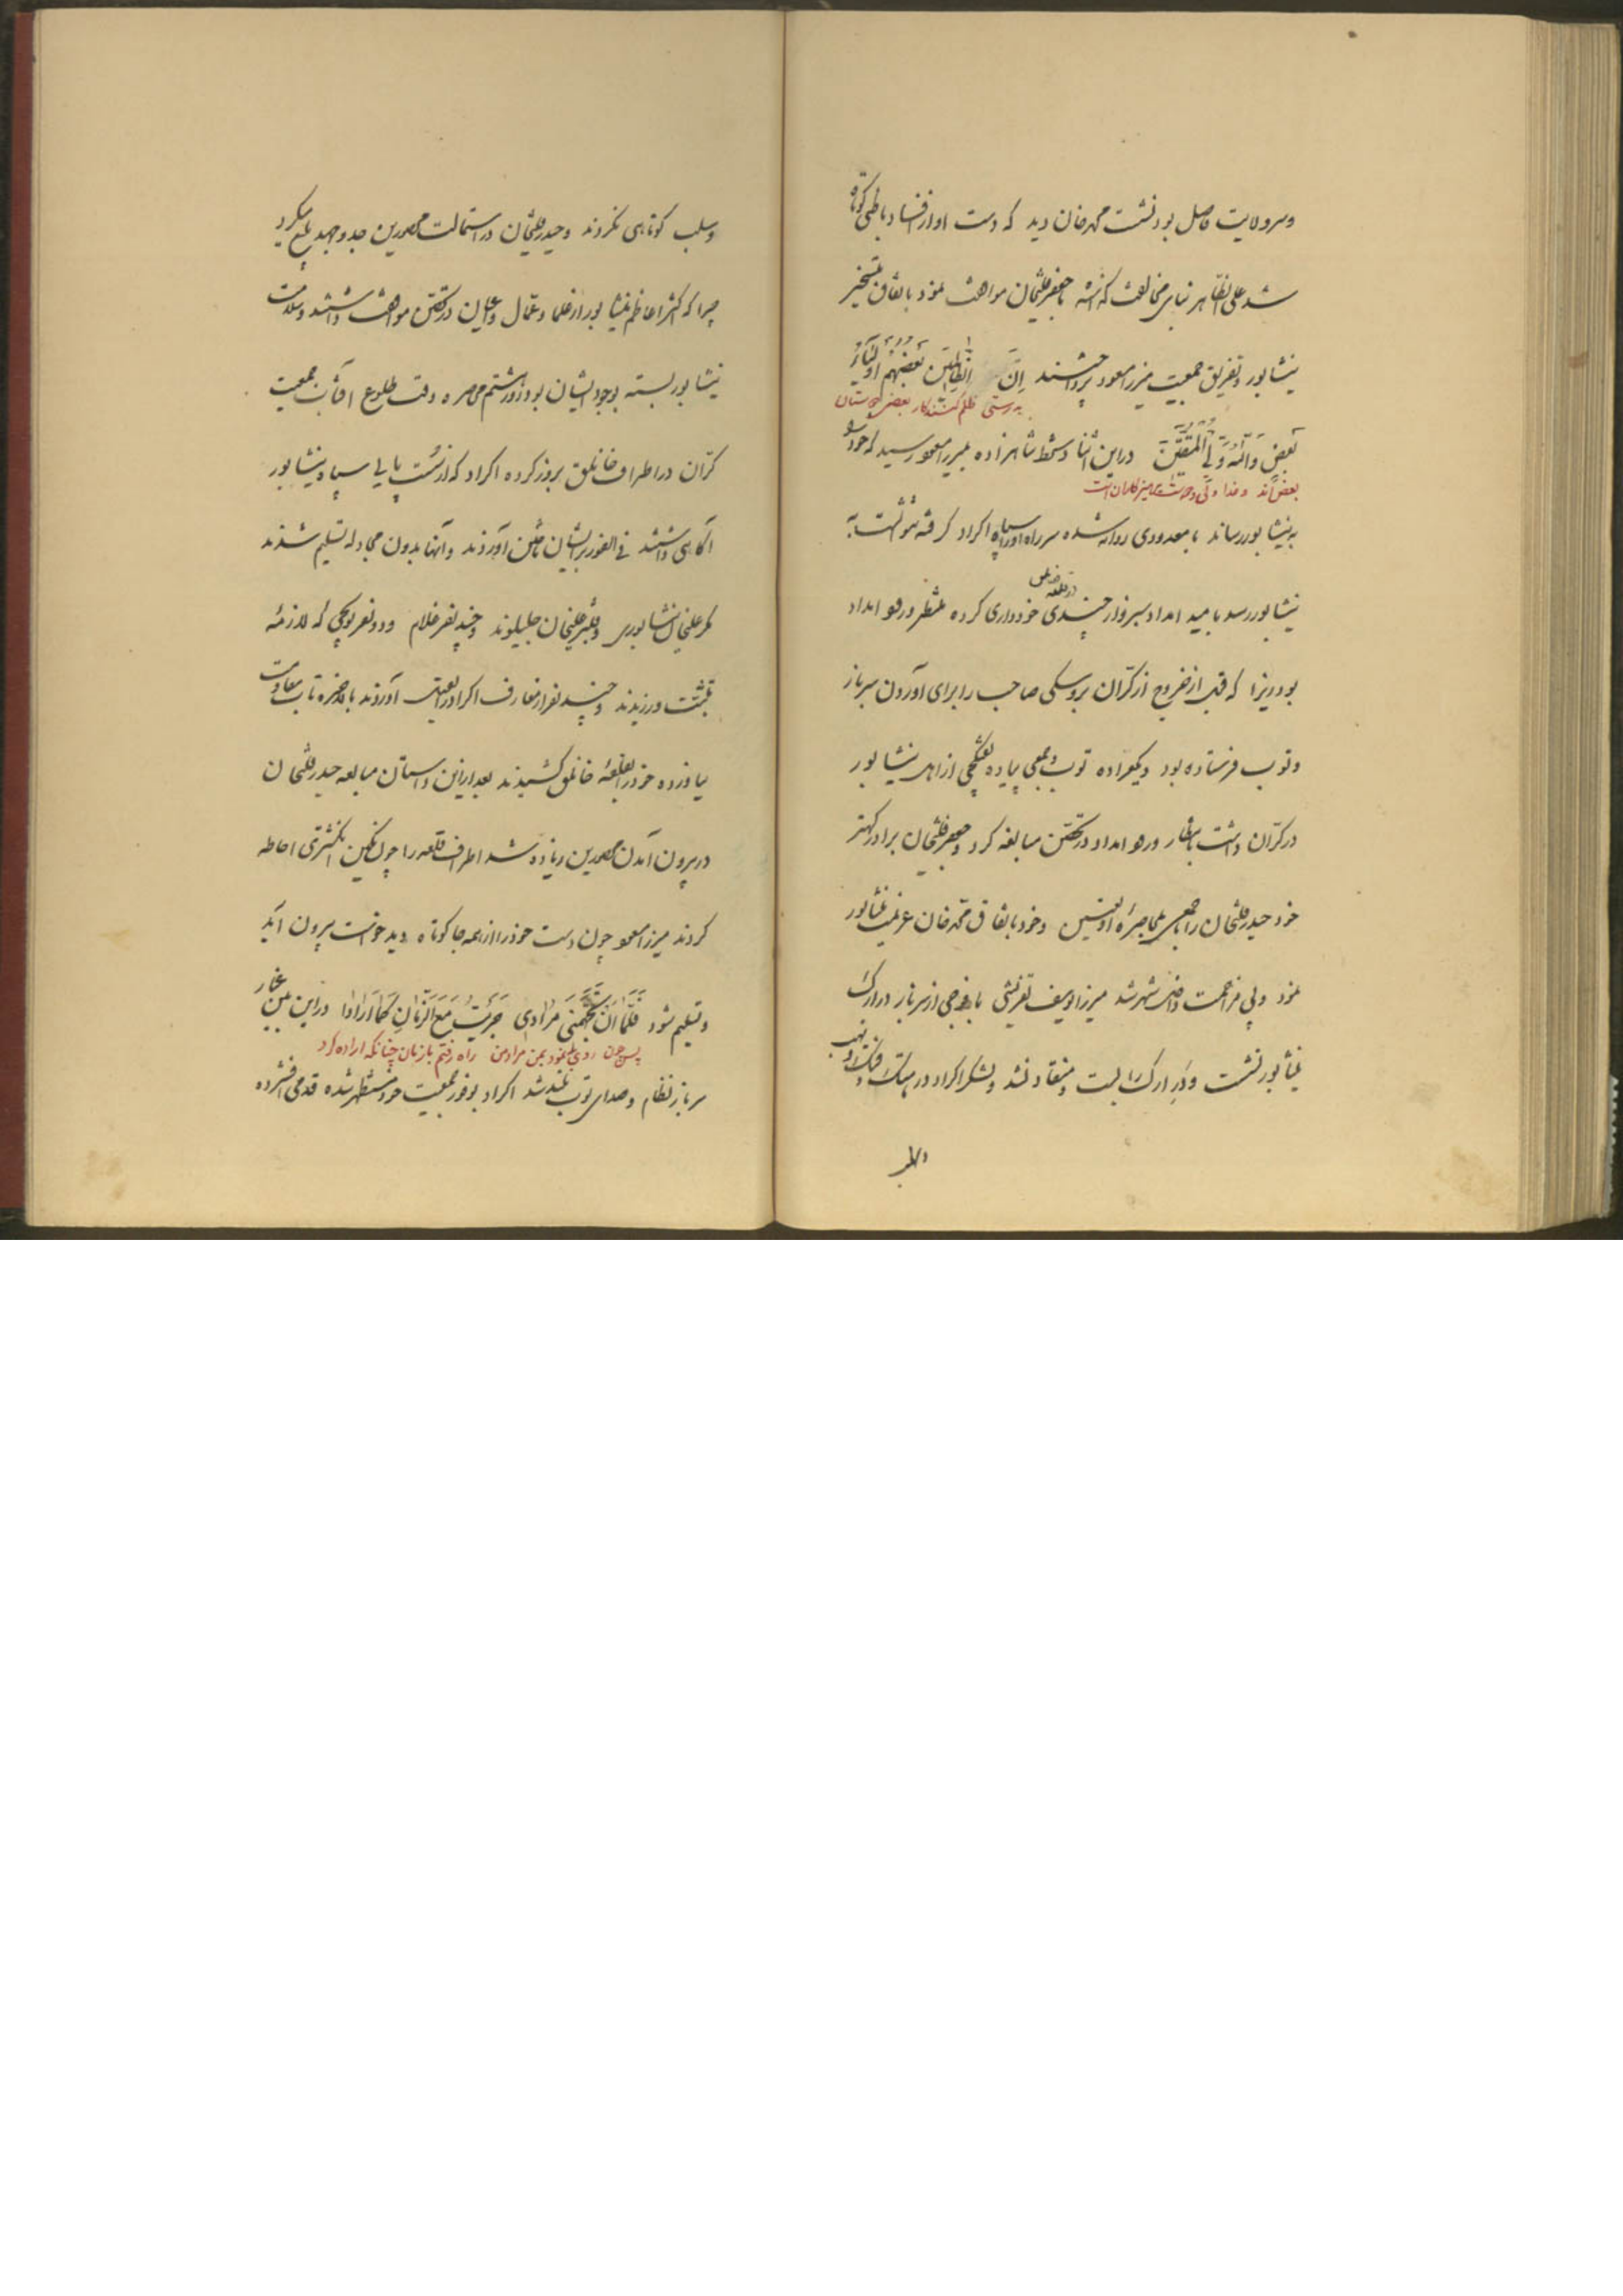 وسرولایت فاصل بود نشست محمدخان دید که دست او از فساد باطنی کوتاه
شد علی الظاهر بنابر مخالفت گذاشته با جعفرقلیخان موافقت نمود باتفاق بتسخیر
نیشابور و تفریق جمعیت میرزامعصوم پرداختند اِنَّ الظالمین بَعضُهُم اَولیآءُ
بدرستی ظلم کنندکان بعضی دوستان
بَعضٍ وَالله وَلِیُّ المُتَّقینَ در این اثنا دستخط شاهزاده بمیرزا معصوم رسید که خود را
بعضی اند و خدا ولی و دوست پرهیزکاران است
به نیشابور رساند با معدودی روانه شده سر راه او را سپاه اکراد گرفته نتوانست به
نیشابور رسد بامید امداد سبزوار چندی در قلعه خانلق خودداری کرده منتظر ورود امداد
بود زیرا که قبل از خروج از کرّان بروسکی صاحب را برای آوردن سرباز
وتوب فرستاده بود و یکعراده توب و جمعی پیاده تفنگچی از اهل نیشابور
در کرّان داشت بانتظار ورود امداد در تحصّن مبالغه کرد و جعفرقلیخان برادر کهتر
خود حیدرقلیخان را با جمعی بمحاصره او تعیین و خود باتفاق محمدخان عزیمت نیشابور
نمود و بی مزاحمت داخل شهر شد میرزا یوسف تفرشی با فوجی از سرباز در ارک
نیشابور نشست و دَرِ ارک را بست و منقاد نشد و لشکر اکراد در هتک و فتک و نهب
وسلب کوتاهی نکردند و حیدرقلیخان در استمالت محصورین جد و جهد بلیغ میکرد
چرا که اکثر اعاظم نیشابور از علما و عمّال و اعیان در تحصّن موافقت داشتند و سلامت
نیشابور بسته بوجود ایشان بود روز هشتم محاصره وقت طلوع آفتاب جمعیت
کرّان در اطراف خانلق بروز کرده اکراد که از پستپایی سپاه نیشابور
آگاهی داشتند فی الفور بر ایشان تاختن آوردند و آنها بدون مجادله تسلیم شدند
مگر علیخان نشابوری و قنبرعلیخان جلیلوند و چند نفر غلام و دو نفر توبچی که لازمهٔ
تثبّت ورزیدند و چند نفر از معارف اکراد را بقتل آوردند بالاخره تاب مقاومت
نیاورده خود را بقلعهٔ خانلق کشیدند بعد از این داستان مبالغه حیدرقلیخان
در بیرون آمدن محصورین زیاده شد اطراف قلعه را چون نگین انگشتری احاطه
کردند میرزا معصوم چون دست خود را از همه جا کوتاه دید خواست بیرون آید
وتسلیم شود فَلَمّا اَن تَجَهَّمَنی مُرادی جَرَیتُ مَعَ الزَّمانِ کَما اَرادا در این بین غبار
پس چون روی ننمود بمن مراد من راه رفتم با زمان چنانکه اراده کرد
سرباز نظام و صدای توب بلند شد اکراد بوفور جمعیت خود مستظهر شده قدمی افشرده